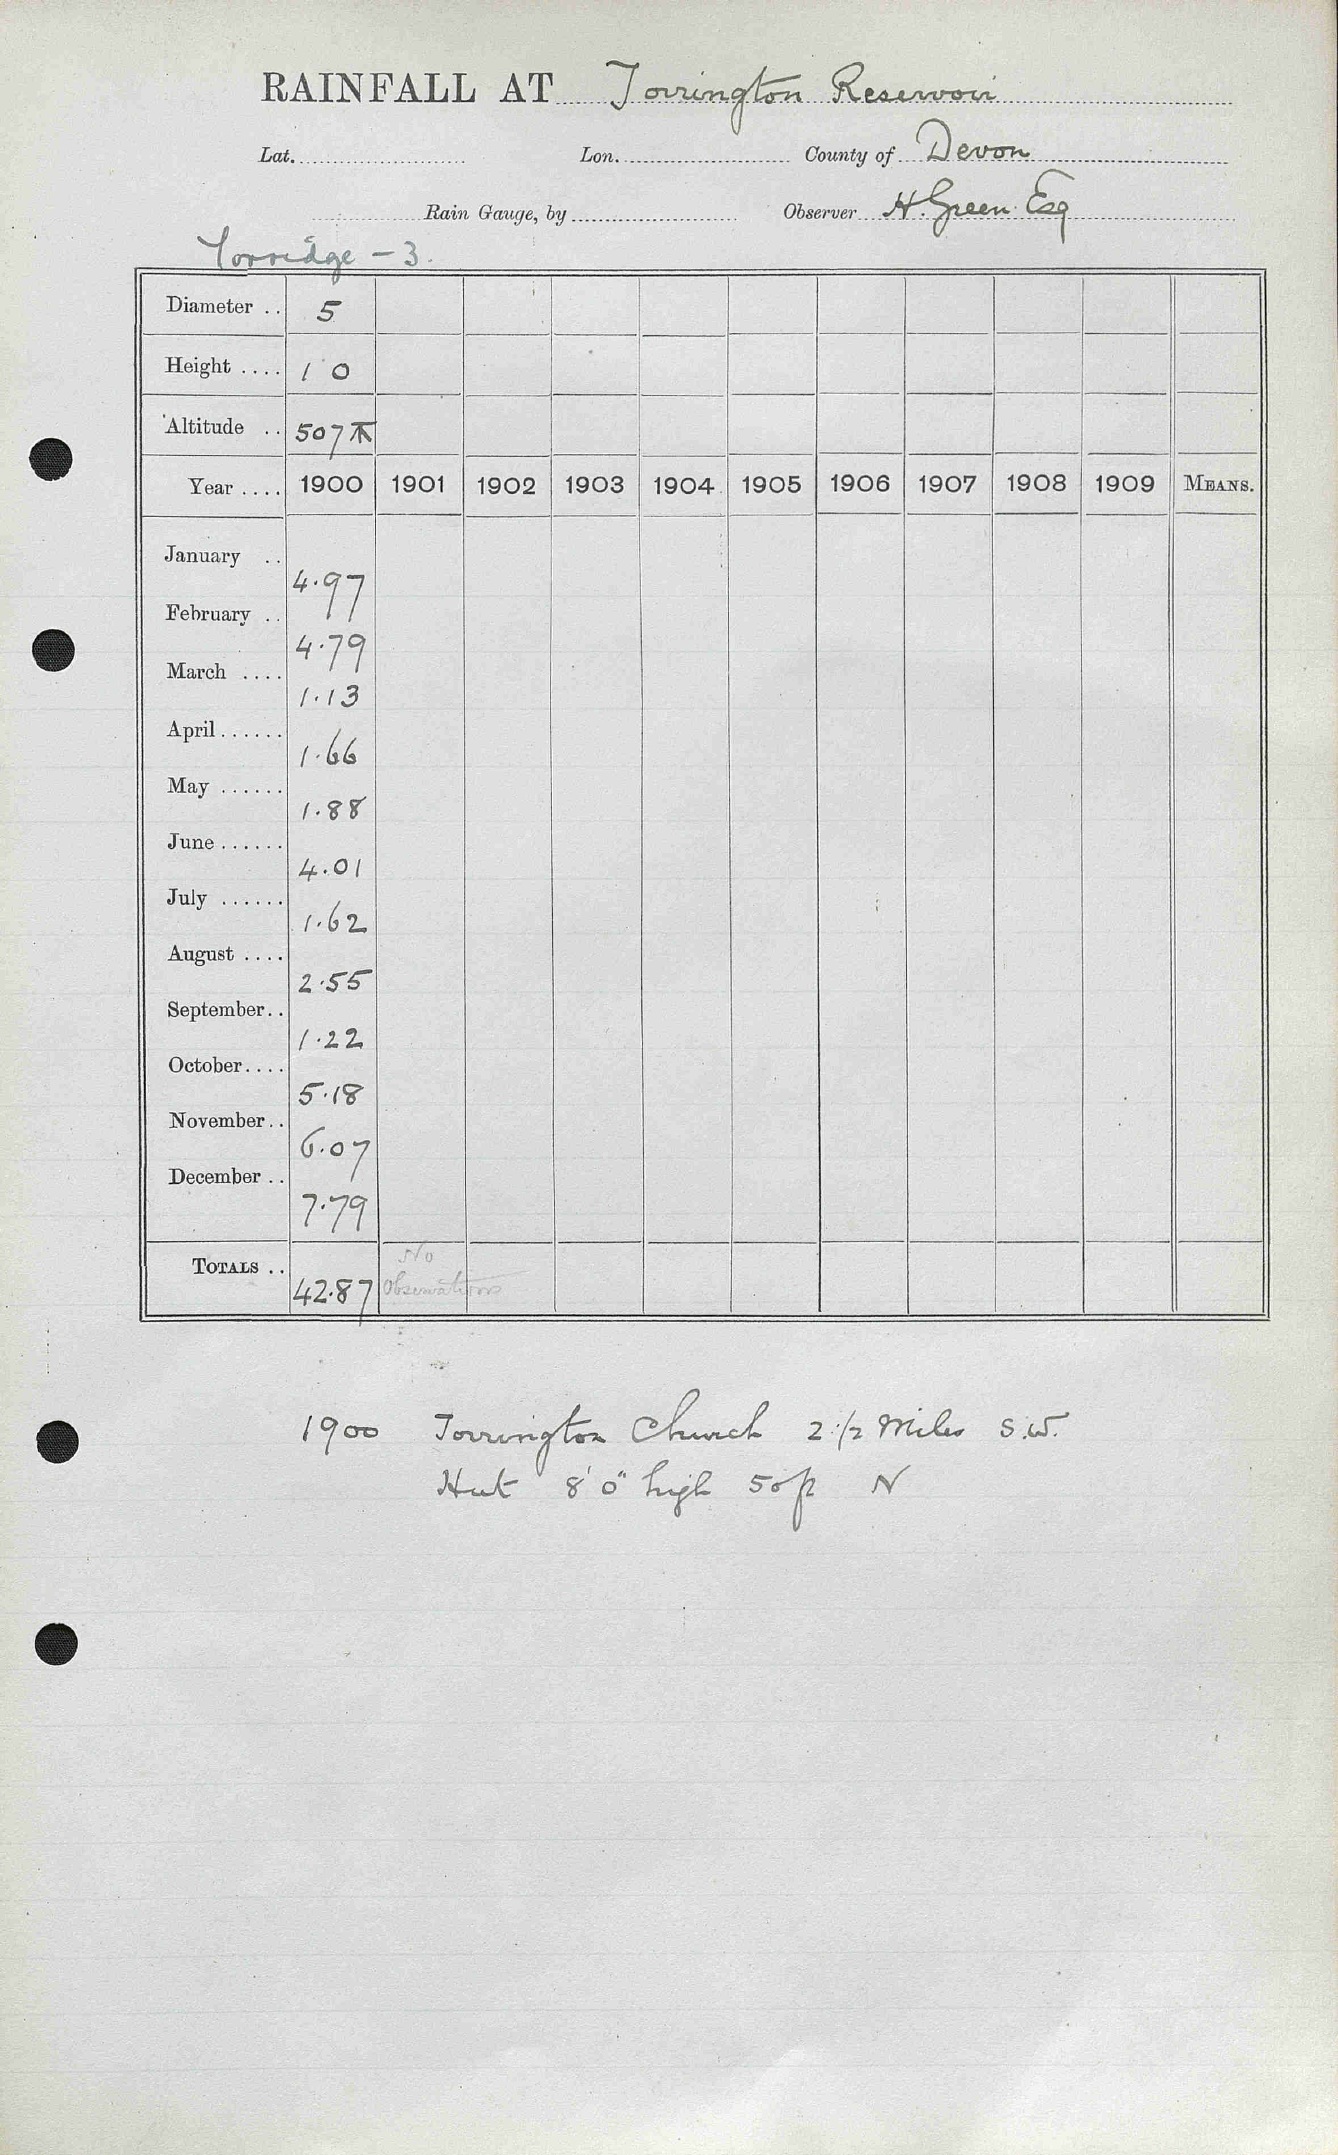 RAINFALL AT Torrington Reservoir
Lat. Lon. County of Devon
Rain Gauge, by Observer H. Green Esq
Torridge - 3.
Diameter .. 5
Height .... 1 0
Altitude .. 507
Year .... 1900 1901 1902 1903 1904 1905 1906 1907 1908 1909 MEANS.
January .. 4.97
February .. 4.79
March .... 1.13
April ...... 1.66
May ...... 1.88
June ...... 4.01
July ...... 1.62
August .... 2.55
September.. 1.22
October.... 5.18
November.. 6.07
December .. 7.79
No
TOTALS .. 42.87 Observations
1900 Torrington Church 2 1/2 Miles S.W.
Hut 8' 0" high N